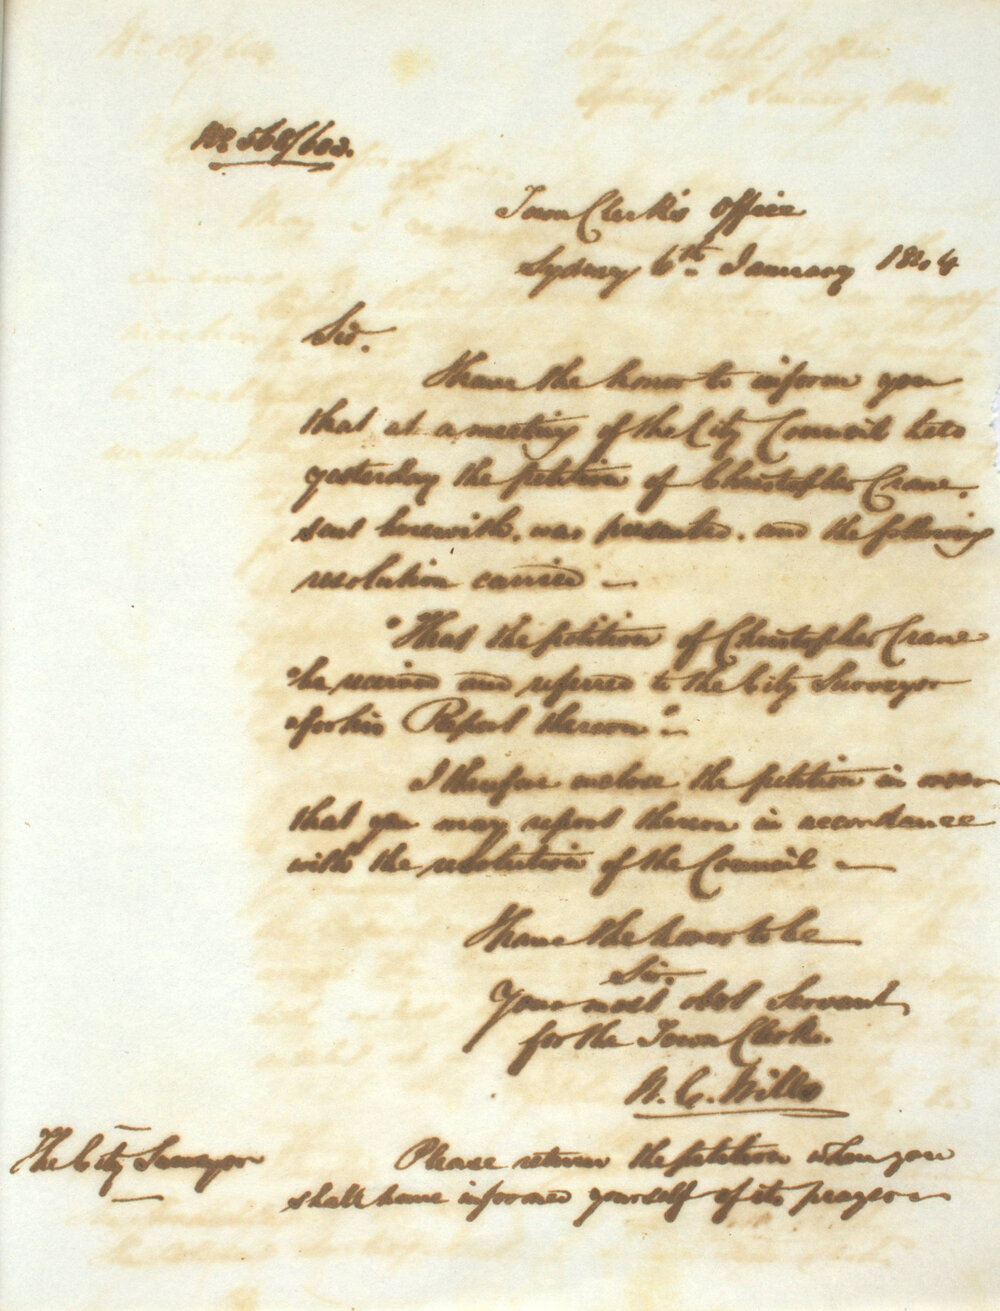 Town Clerk's Office
Sydney 6th January 1864
Sir.
I have the honor to inform you
that at a meeting of the City Council held
yesterday the petition of Christopher Crane,
sent herewith, was presented, and the following
resolution carried —
"That the petition of Christopher Crane
"be received and referred to the City Surveyor
"for his Report thereon" —
I therefore enclose the petition in order
that you may report thereon in accordance
with the resolution of the Council —
I have the honor to be
Sir.
Your most obdt Servant
for the Town Clerk.
W. C. Wills
The City Surveyor
Please return the petition when you
shall have informed yourself of its prayer —